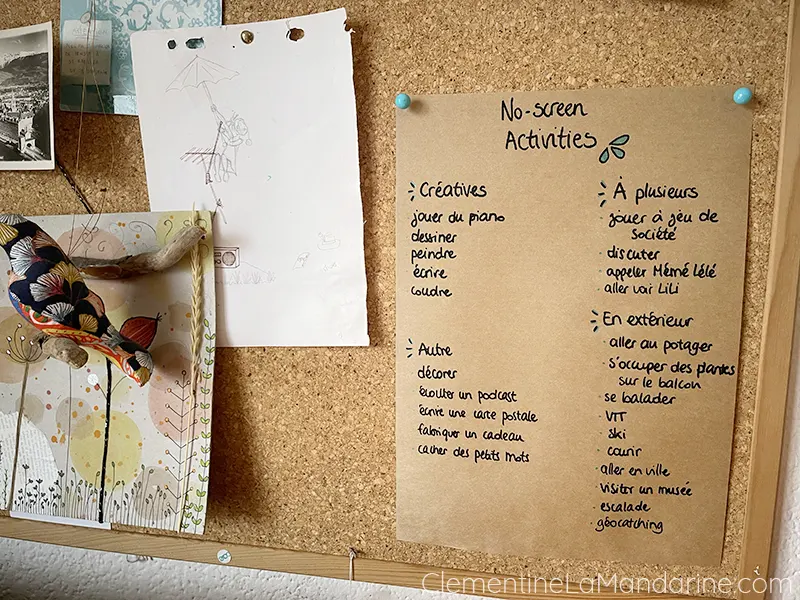 No-screen
Activities
Créatives
jouer du piano
dessiner
peindre
écrire
coudre
Autre
décorer
écouter un podcast
écrire une carte postale
fabriquer un cadeau
cacher des petits mots
À plusieurs
jouer à jeu de
société
discuter
appeler Mémé Lélé
aller voir LiLi
En extérieur
aller au potager
s'occuper des plantes
sur le balcon
se balader
VTT
ski
courir
aller en ville
visiter un musée
escalade
géocatching
ClementineLaMandarine.com